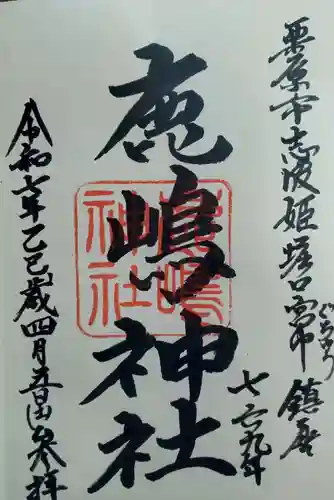 栗原市志波姫堀口宮中 鎮座
七六九年
鹿嶋神社
鹿嶋神社
令和七年乙巳歳四月吉日参拝